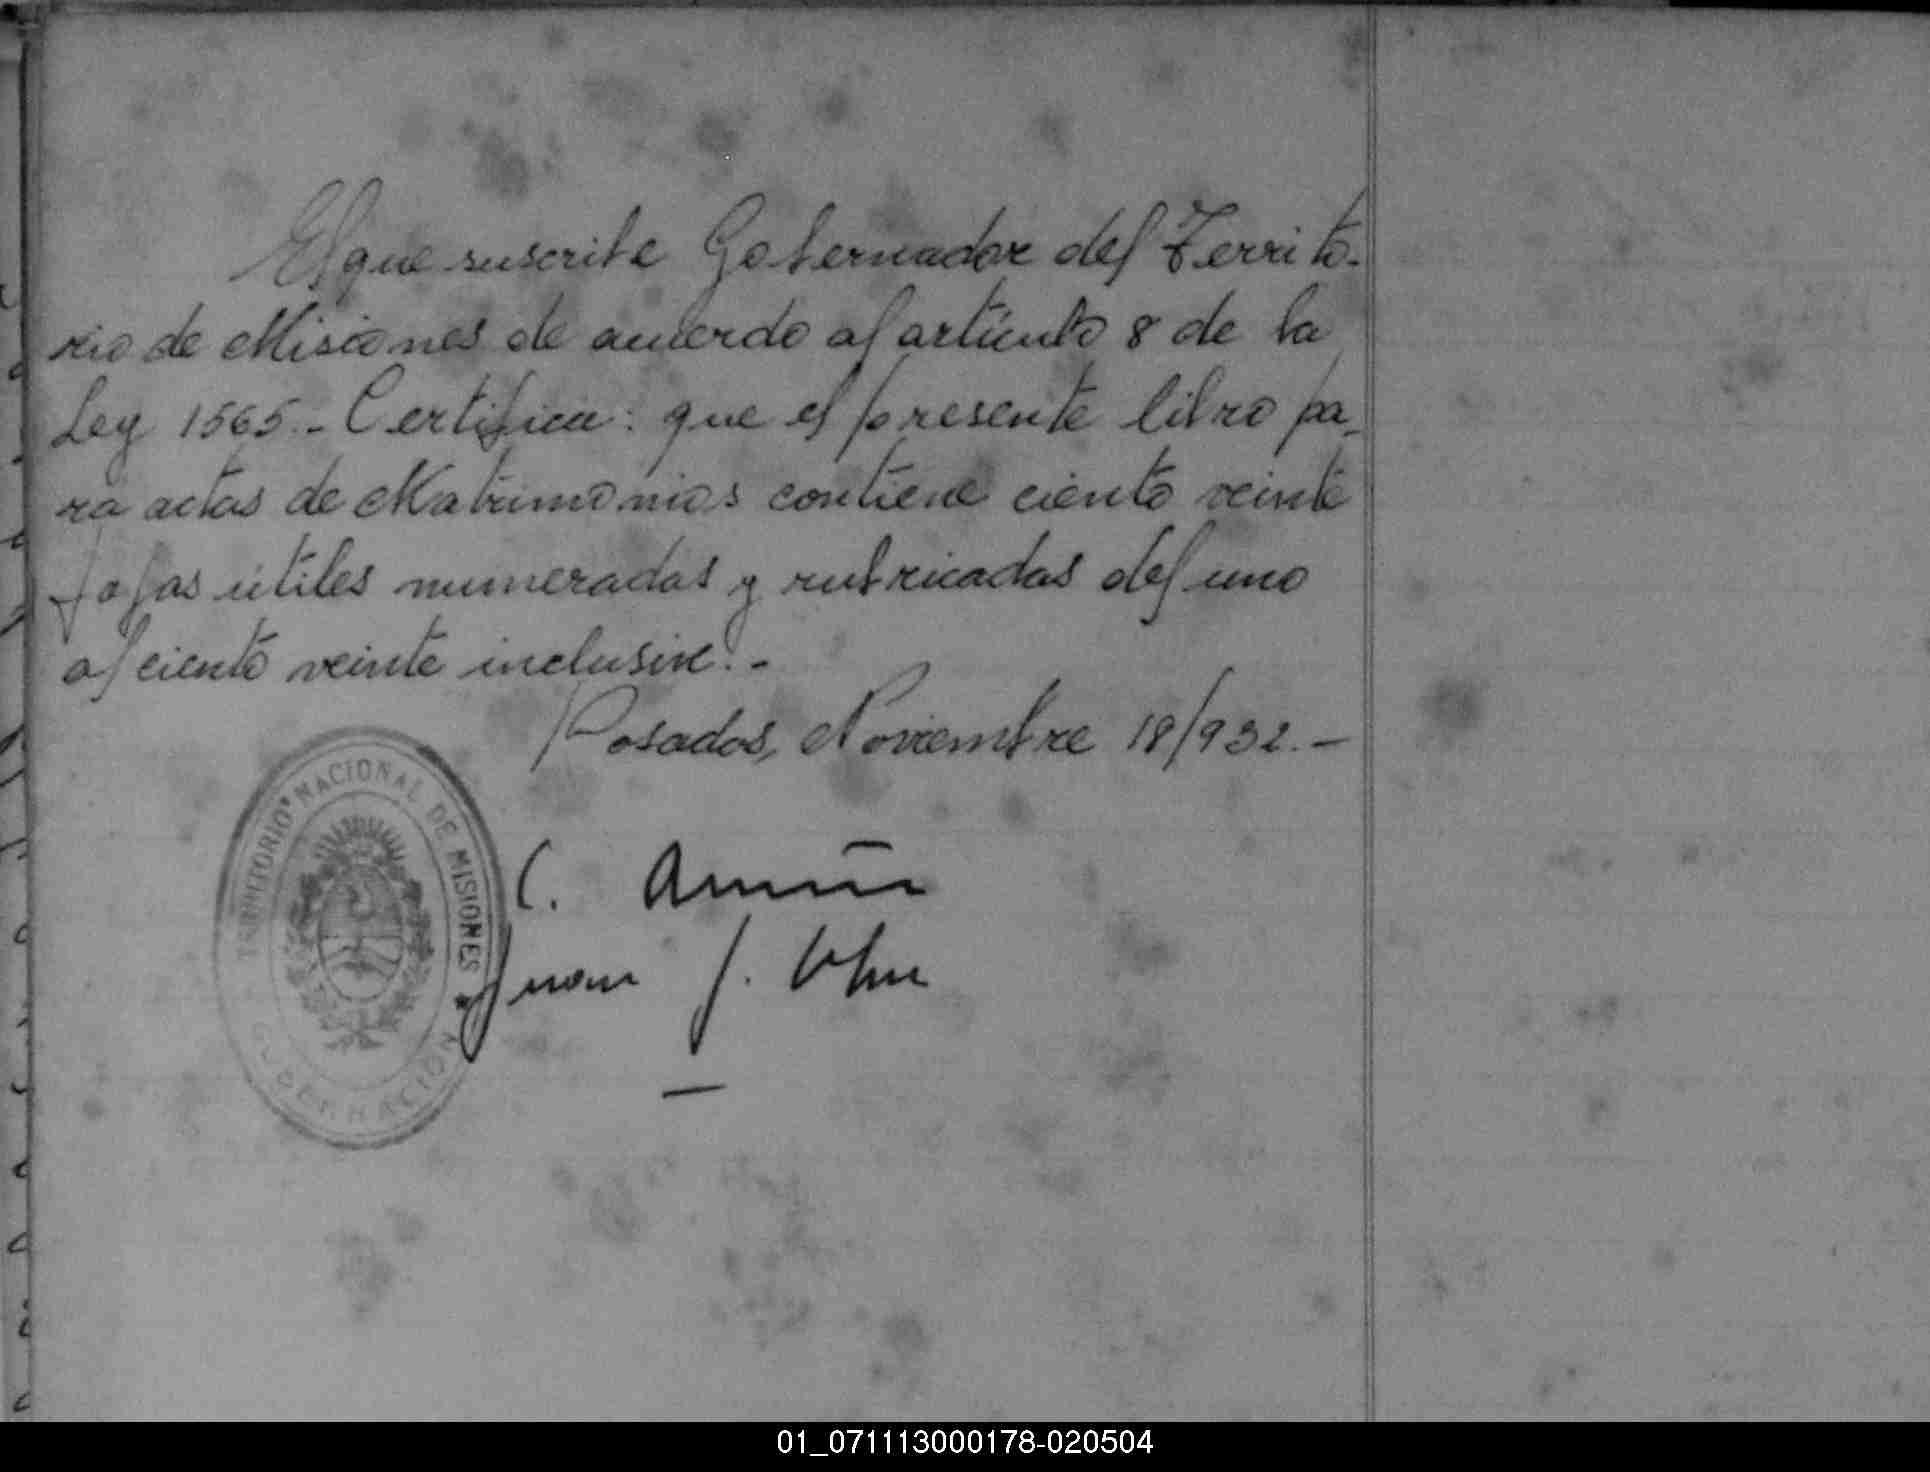 El que suscribe Gobernador del Territo-
rio de Misiones de acuerdo al artículo 8 de la
Ley 1565.- Certifica: que el presente libro pa-
ra actas de Matrimonios contiene ciento veinte
fojas útiles numeradas y rubricadas del uno
al ciento veinte inclusive.-
Posadas, Noviembre 18/932.-
TERRITORIO NACIONAL DE MISIONES
GOBERNACION
C.
Juan J.
01_071113000178-020504